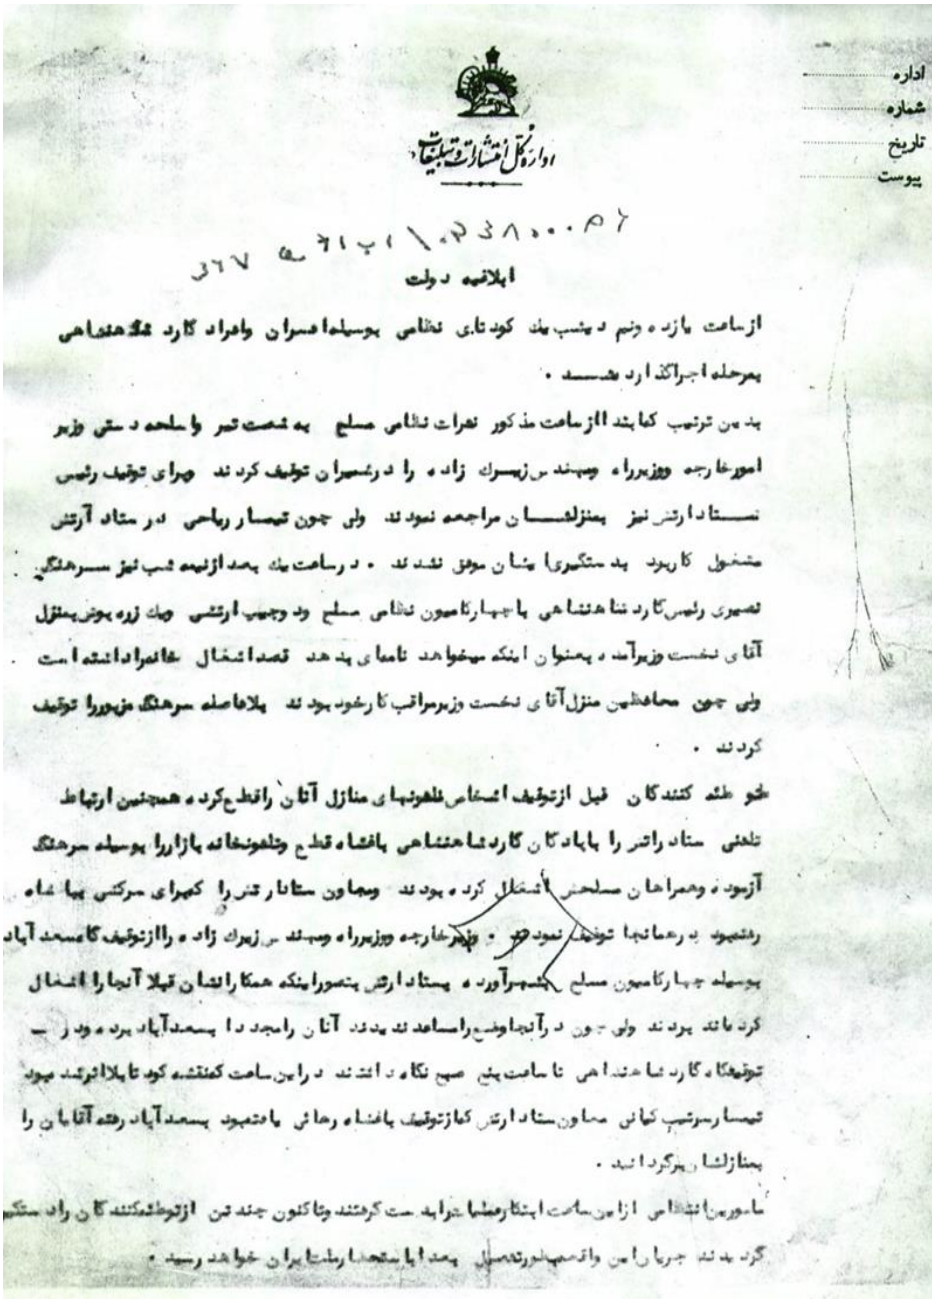 اداره
شماره
تاریخ
پیوست
اداره کل انتشارات و تبلیغات
ابلاغیه دولت
از ساعت یازده ونیم دیشب یک کودتای نظامی بوسیله افسران وافراد گارد شاهنشاهی
بمرحله اجراگذارده شد .
بدین ترتیب که ابتدا از ساعت مذکور نفرات نظامی مسلح به شصت تیر واسلحه دستی وزیر
امورخارجه ووزیرراه ومهندس زیرک زاده را درشمیران توقیف کردند وبرای توقیف رئیس
ستاد ارتش نیز بمنزلشان مراجعه نمودند ولی چون تیمسار ریاحی در ستاد آرتش
مشغول کاربود بدستگیری ایشان موفق نشدند . درساعت یک بعد ازنیمه شب نیز سرهنگ
نصیری رئیس گارد شاهنشاهی باچهارکامیون نظامی مسلح ودوجیپ ارتشی ویک زره پوش بمنزل
آقای نخست وزیرآمده بعنوان اینکه میخواهد نامه‌ای بدهد قصد اشغال خانه را داشته است
ولی چون محافظین منزل آقای نخست وزیرمراقب کارخود بودند بلافاصله سرهنگ مزبوررا توقیف
کردند .
توطئه کنندگان قبل ازتوقیف اشخاص تلفونهای منازل آنان راقطع کرده همچنین ارتباط
تلفنی ستاد راتش را باپادگان گارد شاهنشاهی باغشاه قطع وتلفونخانه بازاررا بوسیله سرهنگ
آزموده وهمراهان مسلحش اشغال کرده بودند ومعاون ستاد ارتش را که برای سرکشی بباغشاه
رفته بود درهمانجا توقیف نمودند . وزیرخارجه ووزیرراه ومهندس زیرک زاده راازتوقیف گاه سعد آباد
بوسیله چهارکامیون مسلح بشهرآورده بستاد ارتش بتصوراینکه همکارانشان قبلا آنجا را اشغال
کرده‌اند بردند ولی چون درآنجا وضع رامساعد ندیدند آنان رامجددا بسعدآباد برده ودر
توقیفگاه گارد شاهنشاهی تا ساعت پنج صبح نگاه داشتند دراین ساعت که نقشه کودتا بلااثرشده بود
تیمسارسرتیپ کیانی معاون ستاد ارتش که ازتوقیف باغشاه رهائی یافته بود بسعدآباد رفته آقایان را
بمنازلشان برگردانید .
مامورین انتظامی ازاین ساعت ابتکارعملیات را بدست گرفتند وتاکنون چند تن ازتوطئه کنندگان رادستگیر
کردند جریان این واقعه بطورتفصیل بعدا باستحضارملت ایران خواهد رسید .